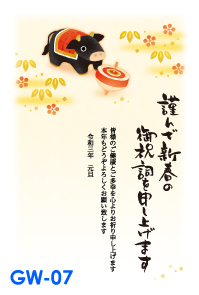 謹んで新春の
御祝詞を申し上げます
皆様のご健康とご多幸を心よりお祈り申し上げます
本年もどうぞよろしくお願い致します
令和三年 元旦
GW-07